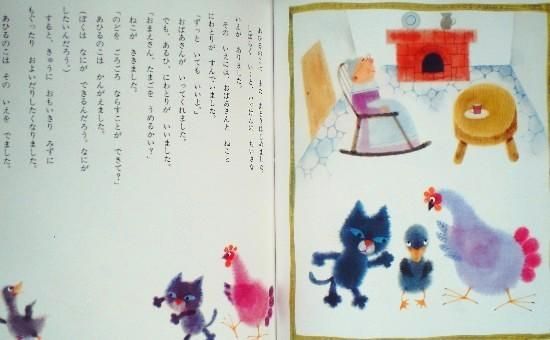 あひるのこは、また あるきはじめました。
しばらく いくと、
いえが ありました。
その いえには、おばあさんと ねこと
にわとりが すんでいました。
「ずっと いても いいよ。」
おばあさんが いってくれました。
でも、あるひ、にわとりが いいました。
「おまえさん、たまごを うめるかい？」
ねこが ききました。
「のどを ごろごろ ならすことが できて？」
あひるのこは かんがえました。
（ぼくは なにが できるんだろう。なにが
したいんだろう。）
すると、きゅうに おもいきり みずに
もぐったり およいだりしたくなりました。
あひるのこは その いえを でました。